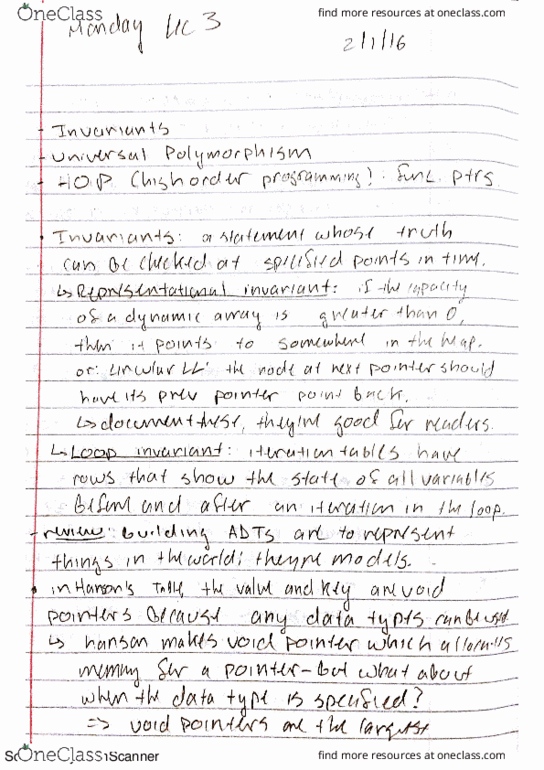 OneClass find more resources at oneclass.com
Monday Lec 3
2/1/16
- Invariants
- Universal Polymorphism
- H.O.P. (high order programming): func. ptrs
• Invariants: a statement whose truth
can be checked at specified points in time.
↳ Representational invariant: if the capacity
of a dynamic array is greater than 0,
then it points to somewhere in the heap.
or: circular LL: the node at next pointer should
have its prev pointer point back.
↳ document these, they're good for readers.
↳ Loop invariant: iteration tables have
rows that show the state of all variables
before and after an iteration in the loop.
- review: building ADTs are to represent
things in the world; they're models.
• in Hanson's Table, the value and key are void
pointers because any data types can be used
↳ hanson makes void pointer which allocates
memory for a pointer - but what about
when the data type is specified?
⇒ void pointers are the largest
OneClass Scanner find more resources at oneclass.com